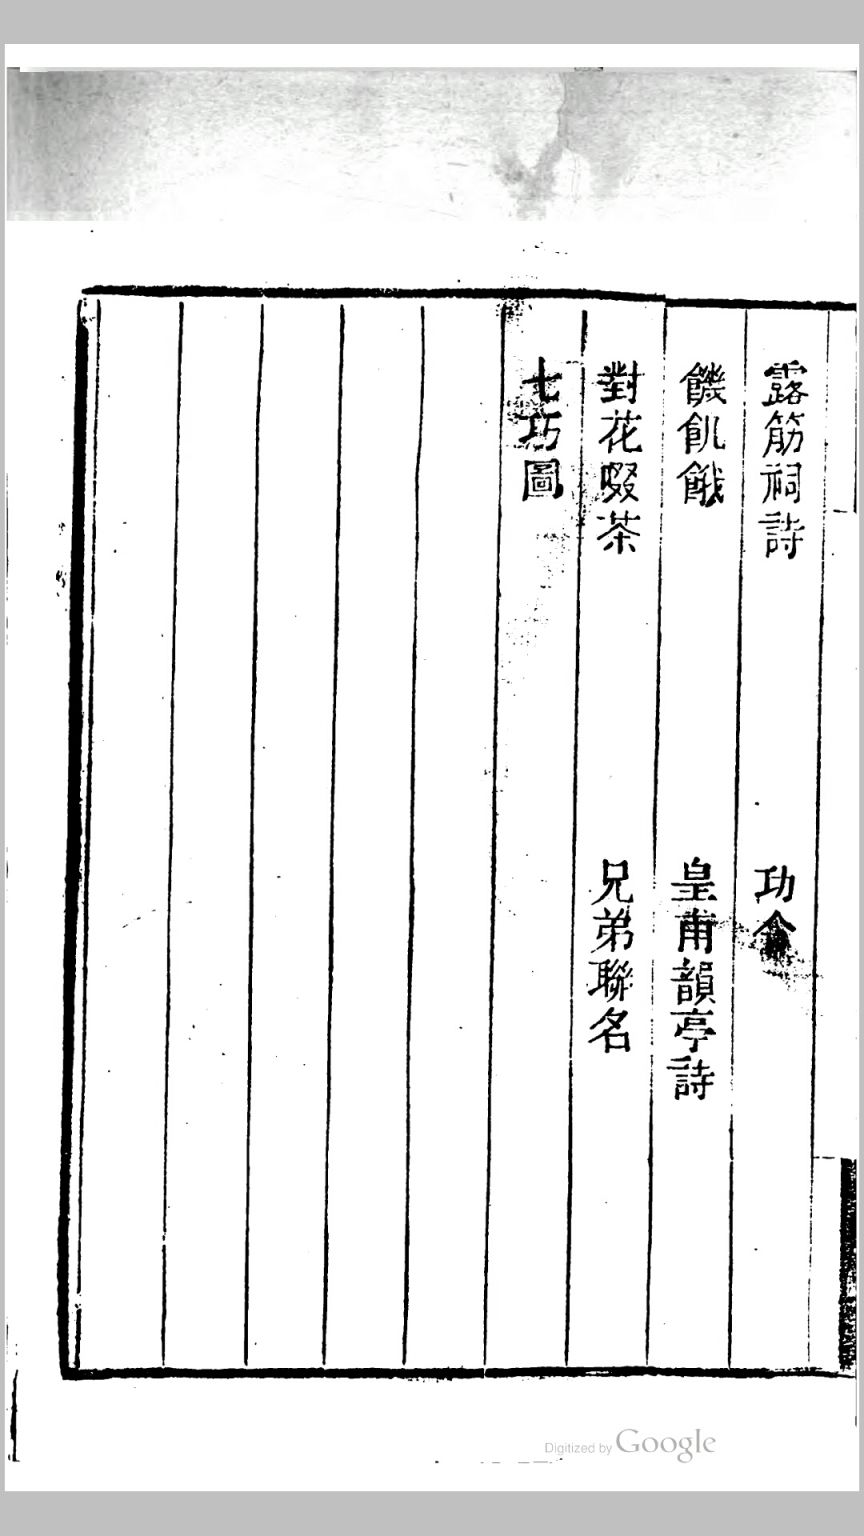 露筋祠詩
功令
饑飢餓
皇甫韻亭詩
對花啜茶
兄弟聯名
七巧圖
Digitized by Google